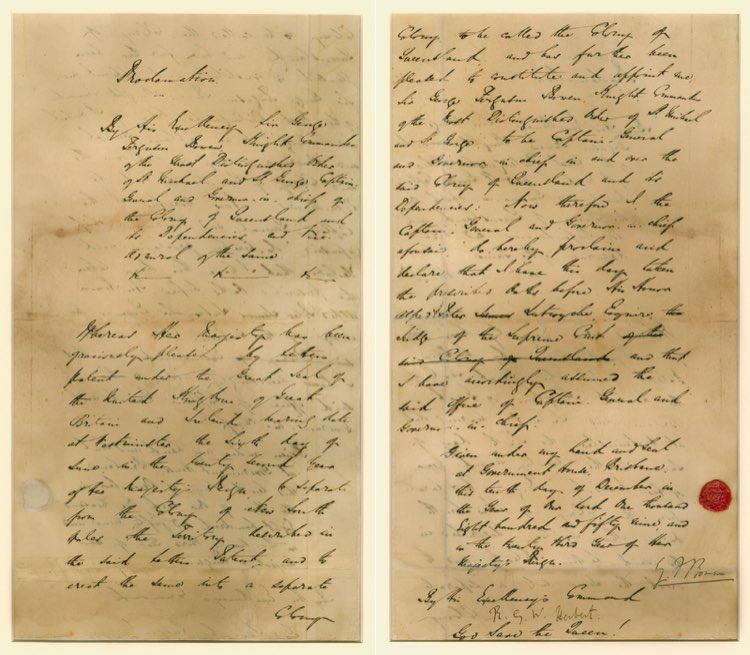 Proclamation
By His Excellency Sir George
Ferguson Bowen, Knight Commander
of the Most Distinguished Order
of St Michael and St George Captain
General and Governor in chief of
the Colony of Queensland and
its Dependencies and Vice
Admiral of the same
&c &c &c
Whereas Her Majesty has been
graciously pleased by Letters
Patent under the Great Seal of
the United Kingdom of Great
Britain and Ireland bearing date
at Westminster the Sixth day of
June in the twenty second year
of Her Majesty's Reign to separate
from the Colony of New South
Wales the Territory described in
the said Letters Patent, and to
erect the same into a separate
Colony
Colony to be called the Colony of
Queensland, and has further been
pleased to constitute and appoint me,
Sir George Ferguson Bowen, Knight Commander
of the Most Distinguished Order of St Michael
and St George, to be Captain General
and Governor in chief in and over the
said Colony of Queensland and its
Dependencies: Now therefore I the
Captain General and Governor in chief
aforesaid do hereby proclaim and
declare that I have this day taken
the prescribed Oaths before His Honor
Alfred Lutwyche Esquire, the
Judge of the Supreme Court of the
said Colony of Queensland, and that
I have accordingly assumed the
said office of Captain General and
Governor in chief.
Given under my hand and Seal
at Government House, Brisbane,
this tenth day of December in
the Year of our Lord One thousand
Eight hundred and fifty nine and
in the twenty third Year of Her
Majesty's Reign.
G F Bowen
By His Excellency's Command
R. G. W. Herbert.
God Save the Queen!